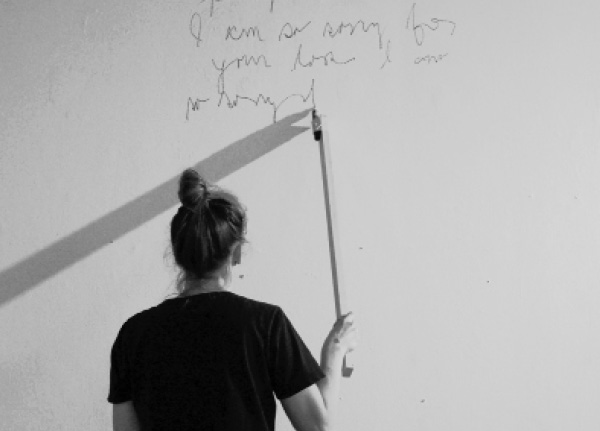 I am so sorry for
your loss I am
so sorry f